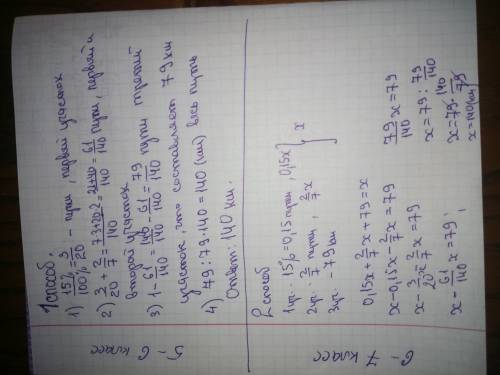 5-6 класс
1 способ.
1) 15%/100% = 3/20 - пути, первый участок
2) 3/20 + 2/7 = (7·3+20·2)/140 = (21+40)/140 = 61/140 пути, первый и
второй участок
3) 1 - 61/140 = 140/140 - 61/140 = 79/140 пути третий
участок, что составляет 79 км
4) 79:79·140=140 (км) весь путь
Ответ: 140 км.
6-7 класс
2 способ
1 уч. - 15%=0,15 пути, 0,15x
2 уч. - 2/7 пути, 2/7 x
3 уч. - 79 км
} x
0,15x + 2/7 x + 79 = x
x - 0,15x - 2/7 x = 79
x - 3/20 x - 2/7 x = 79
x - 61/140 x = 79;
79/140 x = 79
x = 79 : 79/140
x = 79 · 140/79
x = 140 (км)